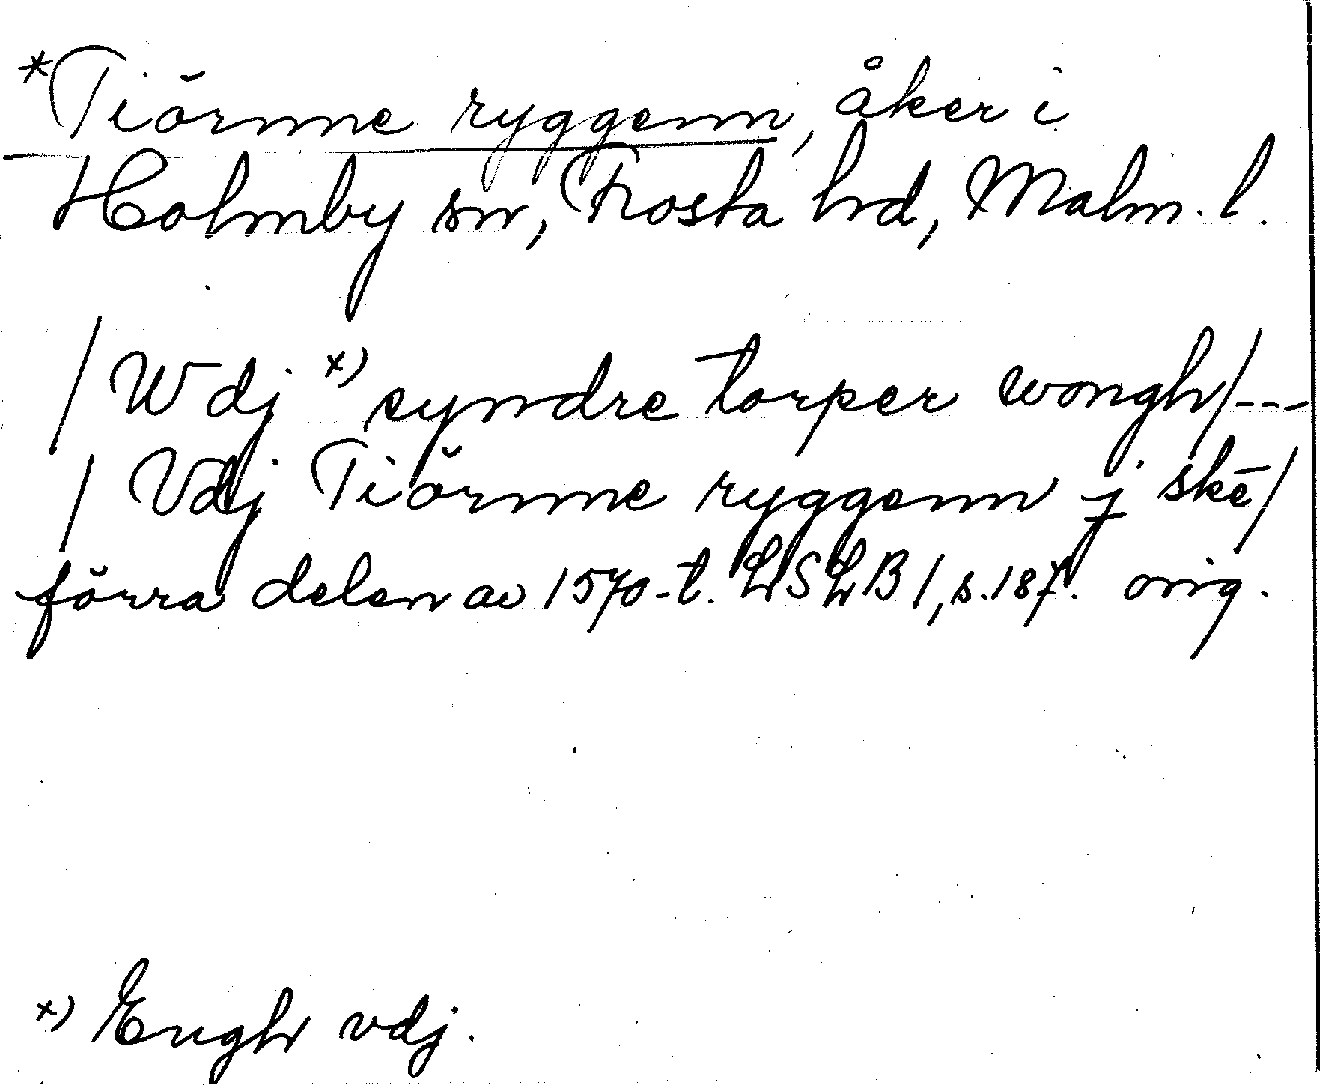 *Tiörnne ryggenn, åker i
Holmby sn, Frosta hd, Malm. l.
/ Wdj *) syndre torper wongh / ---
/ Vdj Tiörnne ryggenn j skē /
förra delen av 1570-t. LSLB 1, s. 187. orig.
*) Engh vdj.